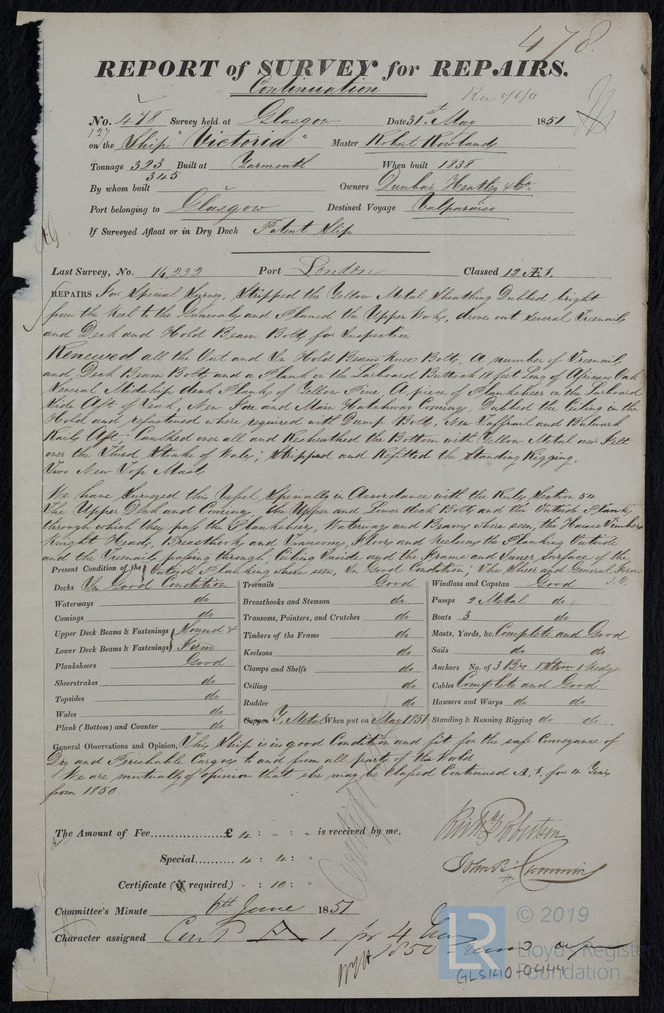 478.
REPORT of SURVEY for REPAIRS.
Continuation
No. 478 Survey held at Glasgow Date 31st May 1851
127
on the Ship "Victoria" Master Robert Rowlands
Tonnage 323 Built at Yarmouth When built 1838
345
By whom built Owners Dunbar Heatley & Co.
Port belonging to Glasgow Destined Voyage Valparaiso
If Surveyed Afloat or in Dry Dock Patent Slip
Last Survey, No. 16,232 Port London Classed 12 Æ 1.
REPAIRS For Special Survey, Stripped the Yellow Metal Sheathing Dubbed bright
from the Keel to the Gunwales and Planed the Upper Works, drove out several Treenails
and Deck and Hold Beam Bolts for Inspection
Renewed all the Out and In Hold Beam Knee Bolts, A number of Treenails
and Deck Beam Bolts and a Plank in the Larboard Buttock 18 feet Long of African Oak
Several Midship deck Planks of Yellow Pine, A piece of Planksheer in the Larboard
Side Aft of , New Fore and Main Hatchway Comings, Dubbed the Ceiling in the
Hold and refastened where required with Dump Bolts, New Taffrail and Bulwark
Rails Aft; Caulked over all and Resheathed the Bottom with Yellow Metal over Felt
over the Third Strake of Wale; Stripped and Refitted the Standing Rigging,
Two New Top Mast
We have Surveyed this Vessel Specially in Accordance with the Rules Section 54
The Upper Deck and Comings, the Upper and Lower deck Bolts and the Outside Plank
through which they pass the Planksheers, Waterways and Beams where seen, the Hawse Timbers
Knight Heads, Breasthooks and Transoms, Floors and Keelsons the Planking Outside
and the Treenails passing through, Ceiling Inside and the Frame and Inner Surface of the
Outside Planking where seen, In Good Condition; The Sheer and General Form
Present Condition of the
Decks In Good Condition Treenails Good Windlass and Capstan Good
Waterways do Breasthooks and Stemson do Pumps 2 Metal do
Comings do Transoms, Pointers, and Crutches do Boats 3 do
Upper Deck Beams & Fastenings Sound & Timbers of the Frame do Masts, Yards, &c. Complete and Good
Lower Deck Beams & Fastenings Firm Keelsons do Sails do do
Planksheers Good Clamps and Shelfs do Anchors No. of 3 Br 1 Stream 1 Kedge
Sheerstrakes do Ceiling do Cables Complete and Good
Topsides do Rudder do Hawsers and Warps do do
Wales do Copper Y. Metal When put on May 1851 Standing & Running Rigging do do
Plank (Bottom) and Counter do
General Observations and Opinion, This Ship is in good Condition and fit for the safe Conveyance of
Dry and Perishable Cargoes to and from all parts of the World
We are mutually of opinion that she may be Classed Continued A. 1. for 4 Years
from 1850
The Amount of Fee £ 4 : " : " is received by me,
Special 4 : 4 : "
Certificate (if required) " : 10 : "
John R Cumming
Committee's Minute 6th June 1851
Character assigned Cont A 1 for 4 Years
1850
LR © 2019
Lloyd's Register
Foundation
GLS140-0444